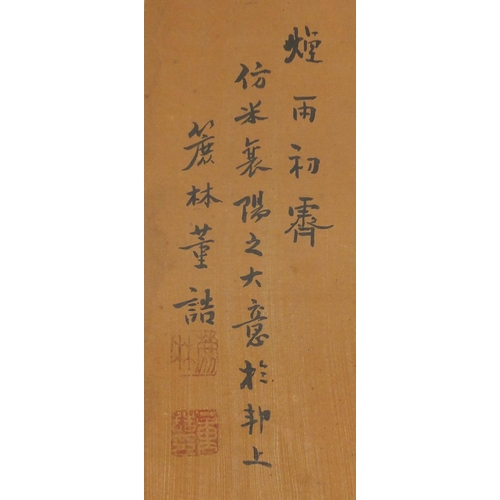 煙雨初霽
仿米襄陽之大意於邗上
簏林董誥